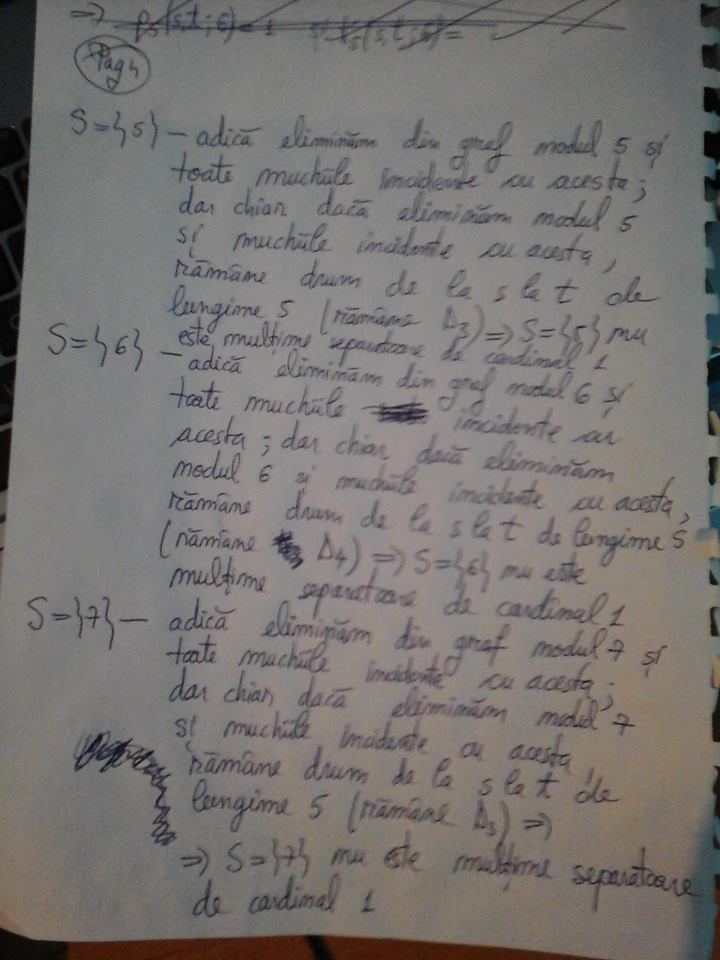 => ps(s,t;6)=1
Pag 4
S={5} — adică eliminăm din graf nodul 5 și
toate muchiile incidente cu acesta;
dar chiar dacă eliminăm nodul 5
și muchiile incidente cu acesta,
rămâne drum de la s la t de
lungime 5 (rămâne Δ3) => S={5} nu
este mulțime separatoare de cardinal 1
S={6} — adică eliminăm din graf nodul 6 și
toate muchiile incidente cu
acesta; dar chiar dacă eliminăm
nodul 6 și muchiile incidente cu acesta,
rămâne drum de la s la t de lungime 5
(rămâne Δ4) => S={6} nu este
mulțime separatoare de cardinal 1
S={7} — adică eliminăm din graf nodul 7 și
toate muchiile incidente cu acesta;
dar chiar dacă eliminăm nodul 7
și muchiile incidente cu acesta,
rămâne drum de la s la t de
lungime 5 (rămâne Δ3) =>
=> S={7} nu este mulțime separatoare
de cardinal 1